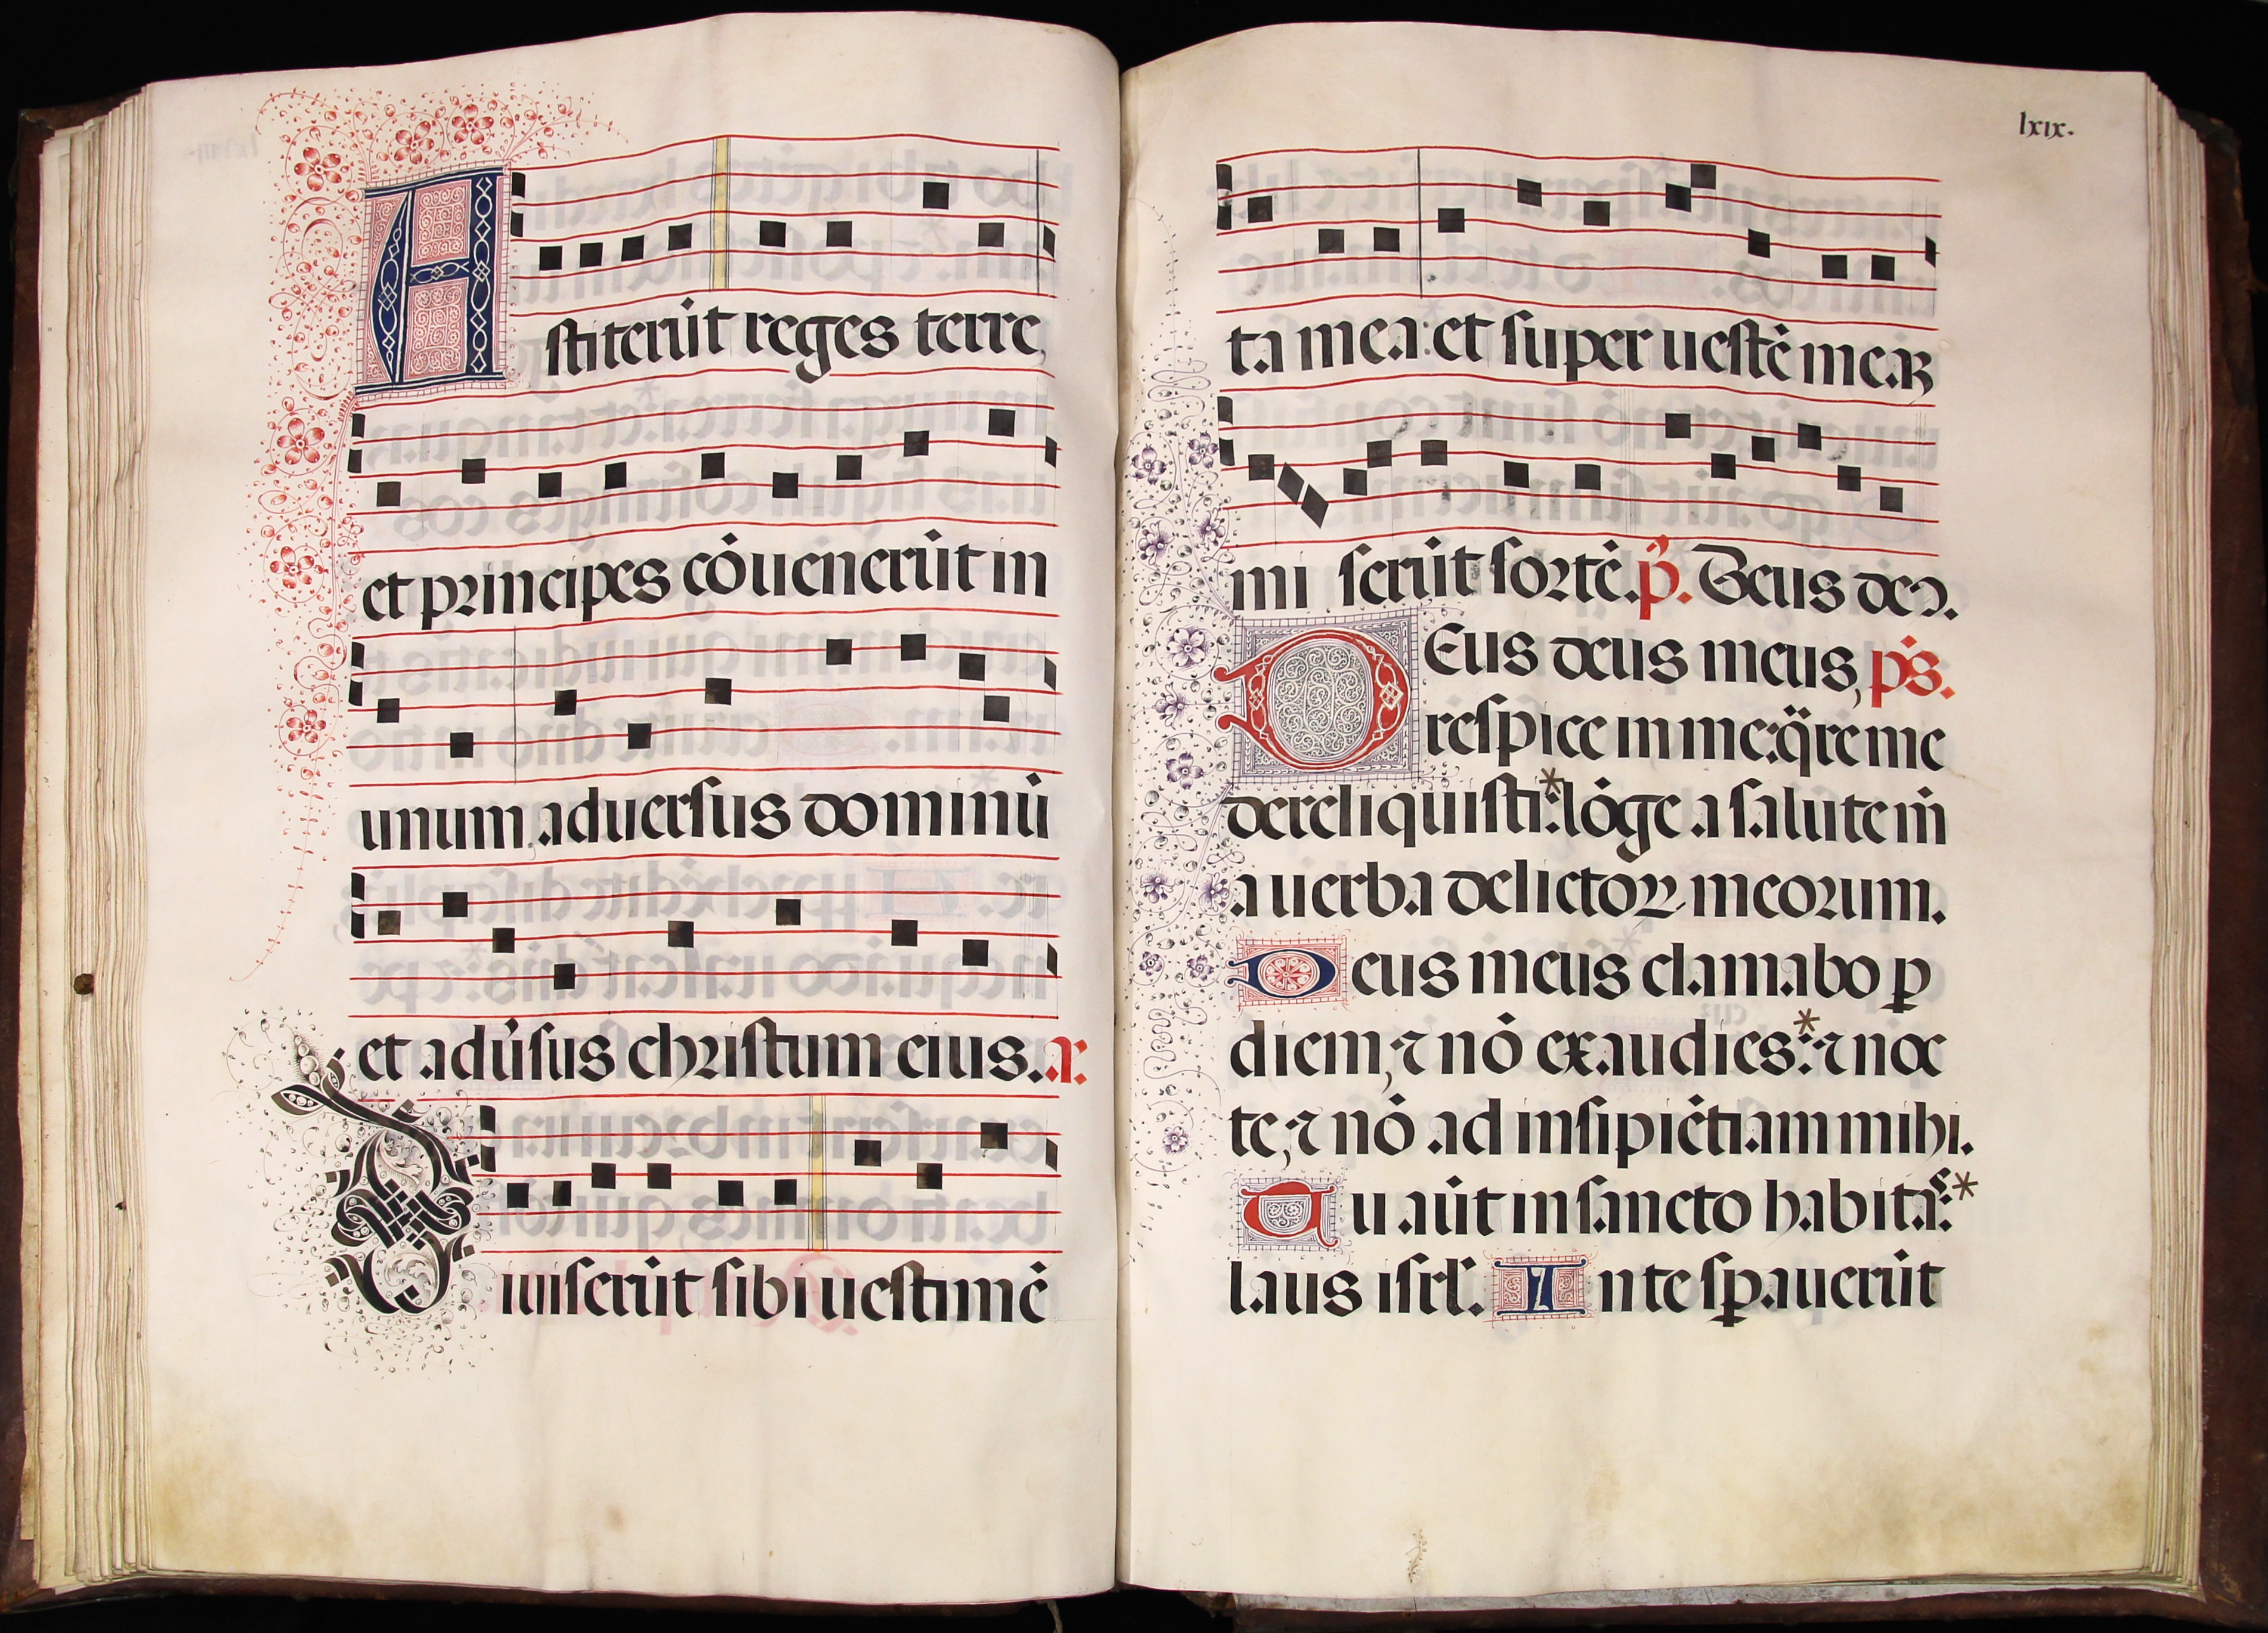 Astiterūt reges terre,
et principes cōuenerūt in
unum, aduersus dominū
et adūsus christum eius. a.
Diuiserūt sibi uestimē
lxix.
ta mea: et super uestē meaȝ
miserūt sortē. p̄. Deus deꝰ.
DEus deus meus, ps̄.
respice in me: q̄re me
dereliquisti:* lōge a salute m̄
a uerba delictoꝝ meorum.
Deus meus clamabo ꝑ
diem, ⁊ nō exaudies:* ⁊ noc
te, ⁊ nō ad insipiētiam mihi.
Tu aūt in sancto habitaˢ:*
laus isrl̄. In te sꝑauerūt